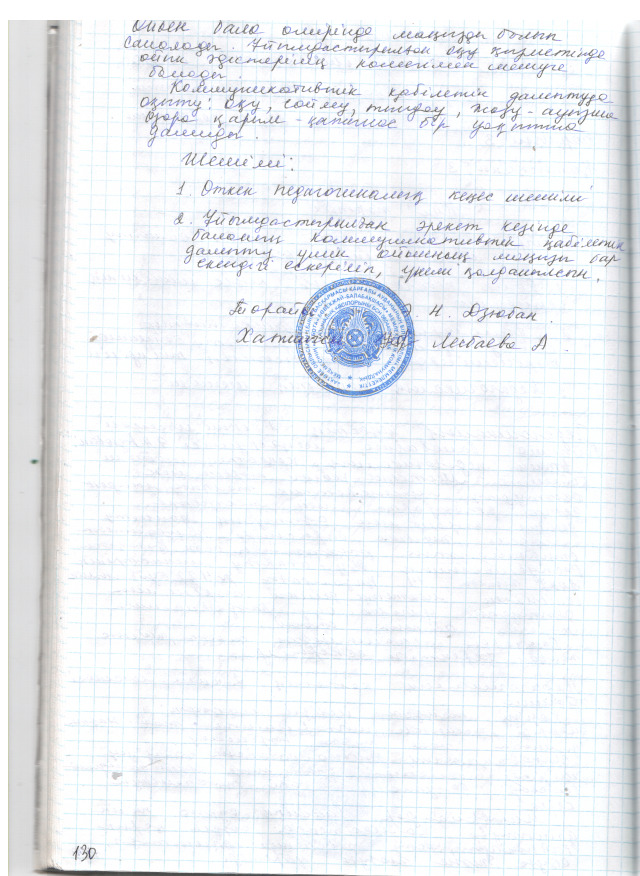 Ойын бала өмірінде маңызды болып
саналады. Ұйымдастырылған оқу қызметінде
ойын әдістерінің көмегімен
болады.
Коммуникативтік қабілетін дамытуда
оқыту: Оқу, сөйлеу, тыңдау, жазу - ауызша
өзара қарым - қатынас бір уақытта
дамиды.
Шешімі:
1. Өткен педагогикалық кеңес шешімі
2. Ұйымдастырылған әрекет кезінде
баланың коммуникативтік қабілетін
дамыту үшін ойынның маңызы бар
екендігі ескеріліп, үнемі қолданылсын.
Н. Дзюбан.
Хатшысы Лесбаева А.
130